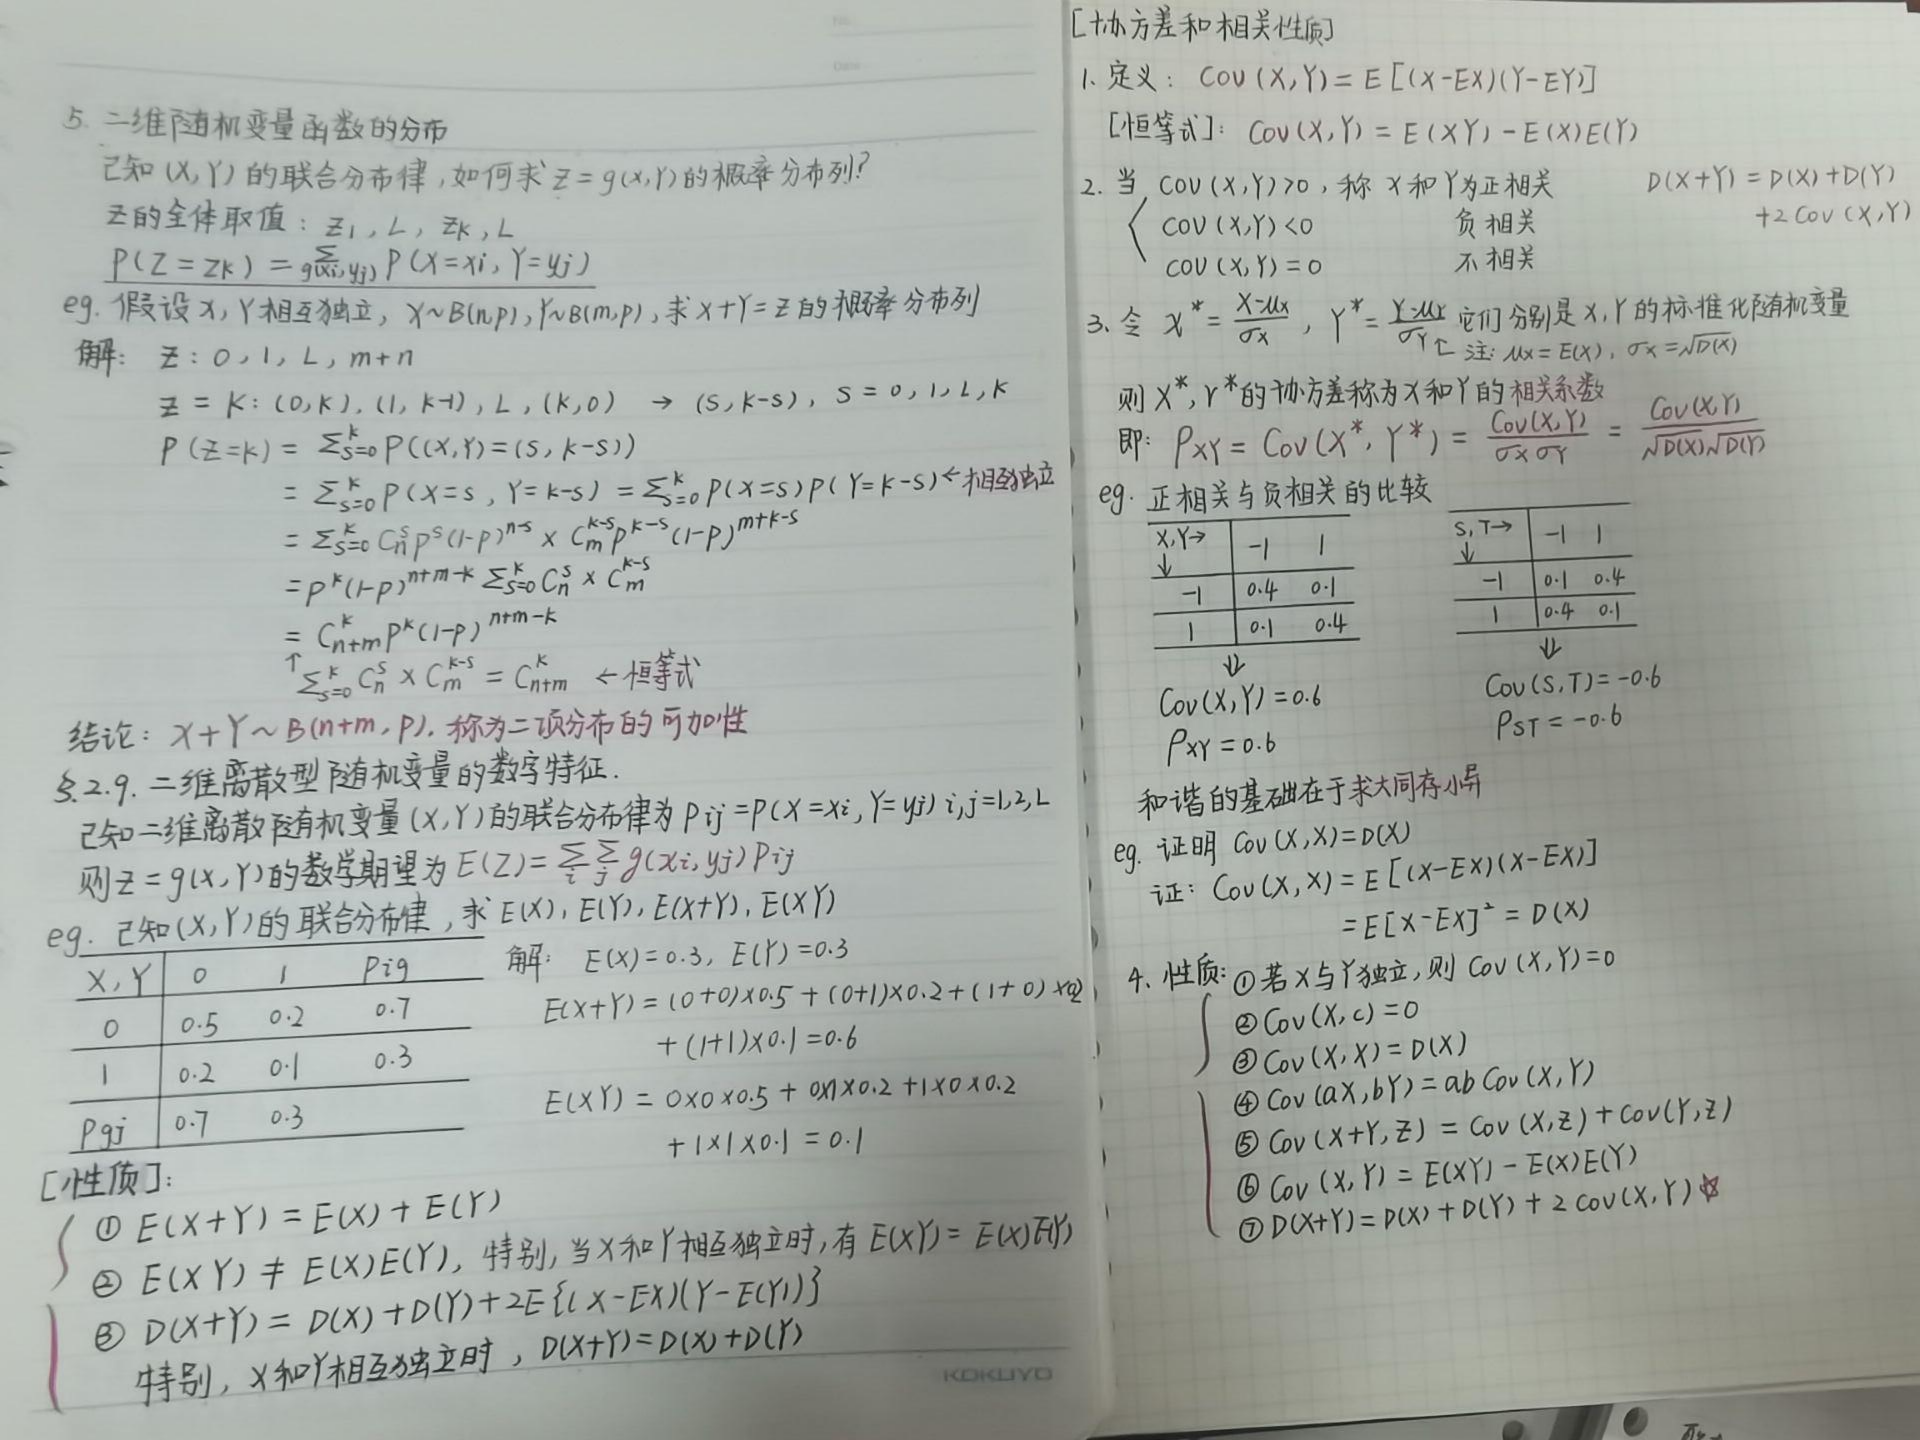 5. 二维随机变量函数的分布
已知 (X,Y) 的联合分布律,如何求 Z=g(X,Y) 的概率分布列?
Z的全体取值: Z1, L, ZK, L
P(Z=ZK) = Σg(xi,yj) P(X=xi, Y=yj)
eg. 假设X,Y相互独立, X~B(n,p), Y~B(m,p), 求X+Y=Z的概率分布列
解: Z: 0, 1, L, m+n
Z = K: (0,K), (1, K-1), L, (K,0) → (S, K-S), S = 0, 1, L, K
P(Z=k) = Σ_{s=0}^k P((X,Y)=(S, k-S))
= Σ_{s=0}^k P(X=s, Y=k-s) = Σ_{s=0}^k P(X=s)P(Y=k-s) ← 相互独立
= Σ_{s=0}^k C_n^s p^s (1-p)^{n-s} × C_m^{k-s} p^{k-s} (1-p)^{m+k-s}
= p^k (1-p)^{n+m-k} Σ_{s=0}^k C_n^s × C_m^{k-s}
= C_{n+m}^k p^k (1-p)^{n+m-k}
↑ Σ_{s=0}^k C_n^s × C_m^{k-s} = C_{n+m}^k ← 恒等式
结论: X+Y~B(n+m, p). 称为二项分布的可加性
§.2.9. 二维离散型随机变量的数字特征.
已知二维离散随机变量 (X,Y) 的联合分布律为 Pij = P(X=xi, Y=yj) i,j=1,2,L
则 Z = g(X,Y) 的数学期望为 E(Z) = Σ_i Σ_j g(xi,yj) Pij
eg. 已知 (X,Y) 的联合分布律, 求 E(X), E(Y), E(X+Y), E(XY)
X,Y 0 1 Pig
0 0.5 0.2 0.7
1 0.2 0.1 0.3
Pgj 0.7 0.3
解: E(X)=0.3, E(Y)=0.3
E(X+Y) = (0+0)×0.5 + (0+1)×0.2 + (1+0)×0.2
+ (1+1)×0.1 = 0.6
E(XY) = 0×0×0.5 + 0×1×0.2 + 1×0×0.2
+ 1×1×0.1 = 0.1
[性质]:
① E(X+Y) = E(X) + E(Y)
② E(XY) ≠ E(X)E(Y), 特别, 当X和Y相互独立时, 有 E(XY) = E(X)E(Y)
③ D(X+Y) = D(X) + D(Y) + 2E{(X-EX)(Y-E(Y))}
特别, X和Y相互独立时, D(X+Y) = D(X) + D(Y)
KOKUYO
[协方差和相关性质]
1. 定义: Cov (X,Y) = E [(X-EX)(Y-EY)]
[恒等式]: Cov(X,Y) = E(XY) - E(X)E(Y)
2. 当 COV (X,Y)>0, 称 X和Y为正相关
COV (X,Y)<0 负相关
COV (X,Y) = 0 不相关
D(X+Y) = D(X) + D(Y)
+2 Cov (X,Y)
3. 令 X* = (X-μX)/σX, Y* = (Y-μY)/σY 它们分别是X,Y的标准化随机变量
↑ 注: μX = E(X), σX = √D(X)
则 X*, Y* 的协方差称为X和Y的相关系数
即: ρXY = Cov(X*, Y*) = Cov(X,Y)/σXσY = Cov(X,Y)/√D(X)√D(Y)
eg. 正相关与负相关的比较
X,Y→ ↓ -1 1
-1 0.4 0.1
1 0.1 0.4
⇓
Cov(X,Y) = 0.6
ρXY = 0.6
S,T→ ↓ -1 1
-1 0.1 0.4
1 0.4 0.1
⇓
Cov(S,T) = -0.6
ρST = -0.6
和谐的基础在于求大同存小异
eg. 证明 Cov(X,X) = D(X)
证: Cov(X,X) = E [(X-EX)(X-EX)]
= E[X-EX]² = D(X)
4. 性质: ① 若X与Y独立, 则 Cov (X,Y)=0
② Cov(X,c) = 0
③ Cov(X,X) = D(X)
④ Cov(aX,bY) = ab Cov(X,Y)
⑤ Cov(X+Y,Z) = Cov(X,Z) + Cov(Y,Z)
⑥ Cov(X,Y) = E(XY) - E(X)E(Y)
⑦ D(X+Y) = D(X) + D(Y) + 2 Cov(X,Y) ☆